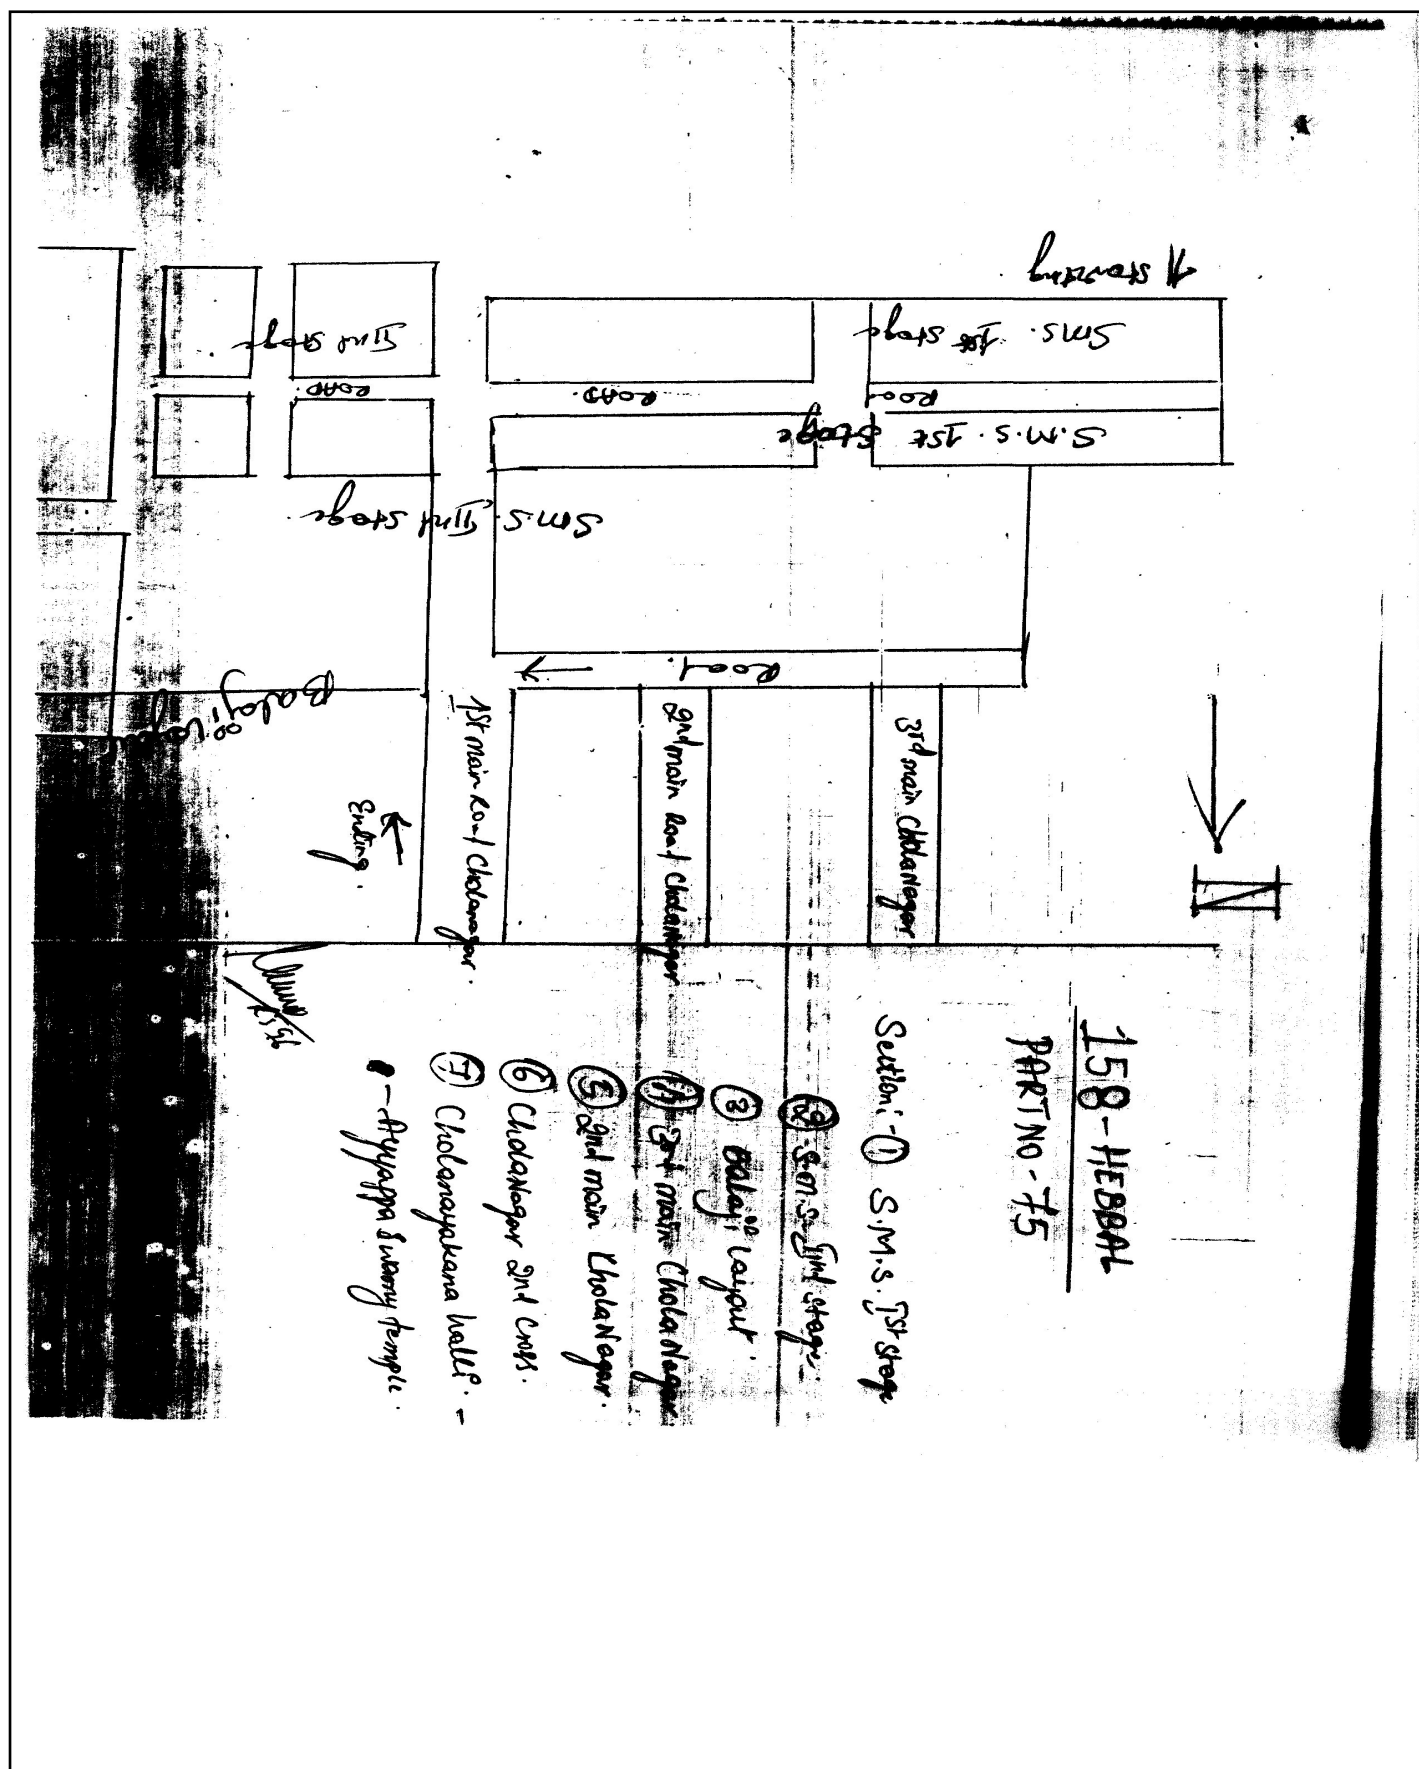 158-HEBBAL
PART NO-75
Section:- ① S.M.S. Ist Stage
② S.M.S. IInd Stage.
③ Balaji Layout.
④ 3rd main Chola Nagar
⑤ 2nd main Chola Nagar.
⑥ CholaNagar 2nd Cross.
⑦ Cholanayakana halli. -
- Ayyappa Swamy temple.
Starting
S.M.S. 1st Stage
Road
S.M.S. 1st Stage
ROAD.
IInd Stage
ROAD.
S.M.S. IInd Stage.
Road.
Balaji Layout
1st main Road Cholanagar.
2nd main Road CholaNagar
3rd main CholaNagar
Ending.
N